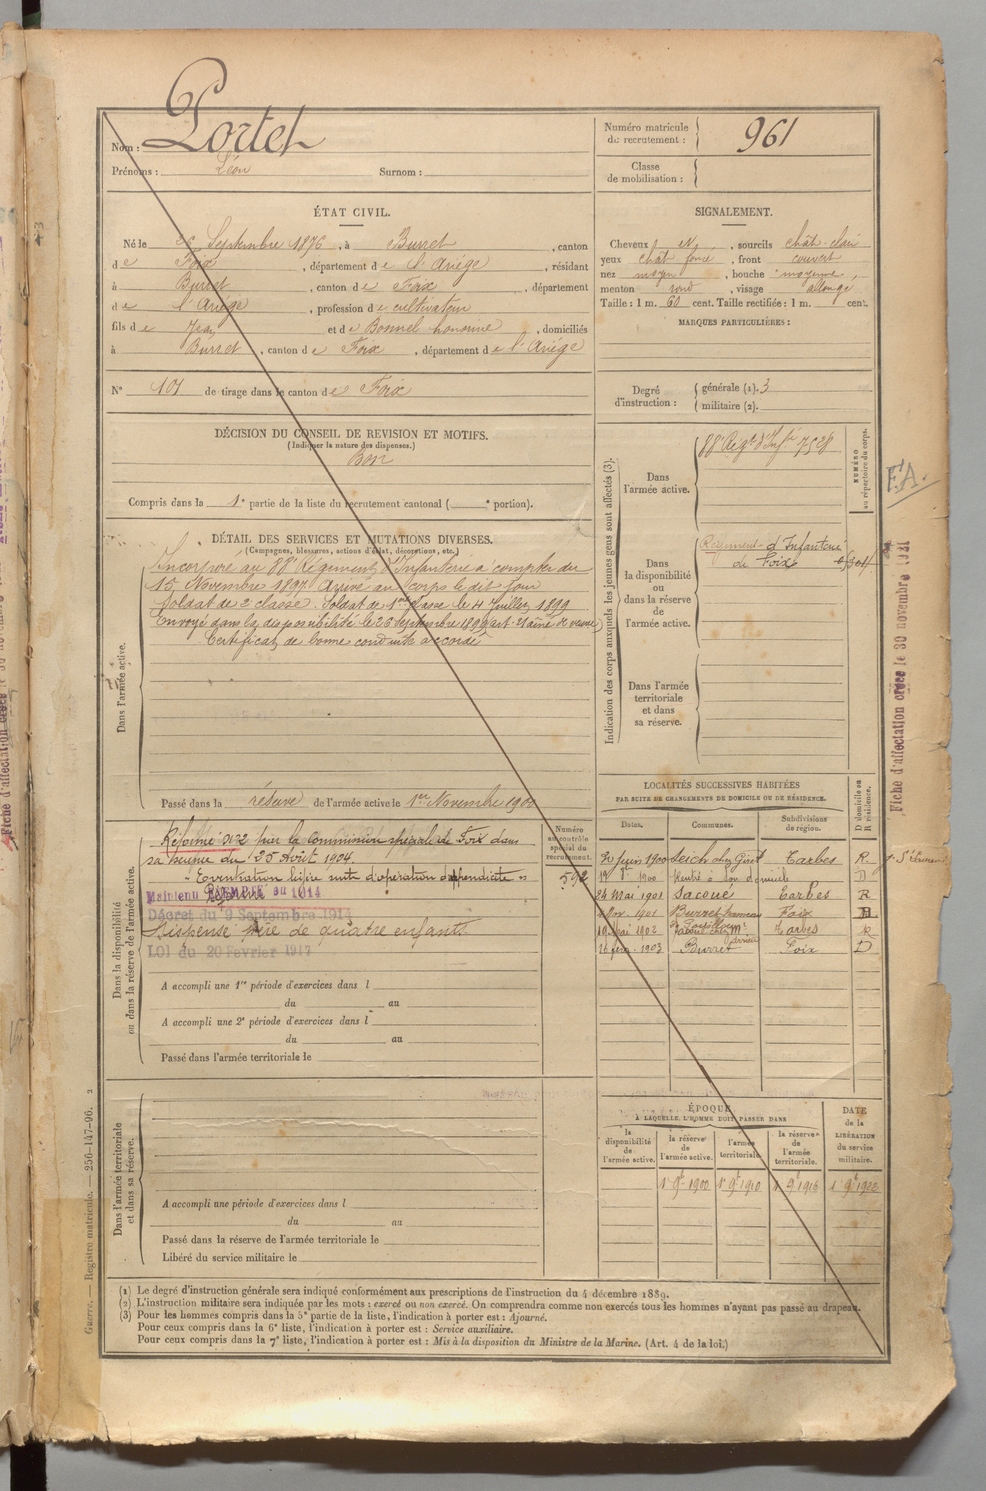 Nom : Portet
Prénoms : Léon Surnom :
Numéro matricule
de recrutement : 961
Classe
de mobilisation :
ÉTAT CIVIL.
Né le 26 Septembre 1876, à Burret, canton
de Foix, département de l'Ariège, résidant
à Burret, canton de Foix, département
de l'Ariège, profession de cultivateur
fils de Jean et de Bonnel honorine, domiciliés
à Burret, canton de Foix, département de l'Ariège
N° 101 de tirage dans le canton de Foix
SIGNALEMENT.
Cheveux N, sourcils chât-clair
yeux chât foncé, front couvert
nez moyen, bouche moyenne,
menton rond, visage allongé
Taille : 1 m. 60 cent. Taille rectifiée : 1 m. cent.
MARQUES PARTICULIÈRES :
Degré
d'instruction :
générale (1). 3
militaire (2).
DÉCISION DU CONSEIL DE REVISION ET MOTIFS.
(Indiquer la nature des dispenses.)
Bon
Compris dans la 1e partie de la liste du recrutement cantonal ( e portion).
DÉTAIL DES SERVICES ET MUTATIONS DIVERSES.
(Campagnes, blessures, actions d'éclat, décorations, etc.)
Dans l'armée active.
Incorporé au 88e Régiment d'Infanterie à compter du
15 Novembre 1897. Arrivé au corps le dit jour
Soldat de 2e classe. Soldat de 1re classe le 4 Juillet 1899
Envoyé dans la disponibilité le 26 Septembre 1899
Certificat de bonne conduite accordé
Passé dans la réserve de l'armée active le 1er Novembre 1900
Indication des corps auxquels les jeunes gens sont affectés (3).
NUMÉRO
au répertoire du corps.
Dans
l'armée active.
88e Régt d'Infie 7528
Dans
la disponibilité
ou
dans la réserve
de
l'armée active.
Régiment d'Infanterie
de Foix
Dans l'armée
territoriale
et dans
sa réserve.
F.A.
Fiche d'affectation créée le 30 novembre 1921
Dans la disponibilité
ou dans la réserve de l'armée active.
Réformé N°2 par la Commission spéciale de Foix dans
sa séance du 25 Août 1904.
"Eventration légère suite d'opération d'appendicite"
Maintenu Réformé
Décret du 9 Septembre 1914
Dispensé père de quatre enfants
LOI du 20 Février 1917
A accompli une 1re période d'exercices dans l
du au
A accompli une 2e période d'exercices dans l
du au
Passé dans l'armée territoriale le
Numéro
au contrôle
spécial du
recrutement.
592
LOCALITÉS SUCCESSIVES HABITÉES
PAR SUITE DE CHANGEMENTS DE DOMICILE OU DE RÉSIDENCE.
Dates. Communes. Subdivisions
de région.
D domicile ou
R résidence.
20 juin 1900 Seich Tarbes R
1900 Rentré à son domicile D
24 Mai 1901 Sacoué Tarbes R
1901 Burret Foix D
19 Mai 1902 Tarbes R
1903 Burret Foix D
Dans l'armée territoriale
et dans sa réserve.
A accompli une période d'exercices dans l
du au
Passé dans la réserve de l'armée territoriale le
Libéré du service militaire le
ÉPOQUE
À LAQUELLE L'HOMME DOIT PASSER DANS
la
disponibilité
de
l'armée active.
la réserve
de
l'armée active.
l'armée
territoriale.
la réserve
de
l'armée
territoriale.
DATE
de la
LIBÉRATION
du service
militaire.
1er 9bre 1900 1er 9bre 1910 1er 9bre 1916 1er 9bre 1922
(1) Le degré d'instruction générale sera indiqué conformément aux prescriptions de l'instruction du 4 décembre 1889.
(2) L'instruction militaire sera indiquée par les mots : exercé ou non exercé. On comprendra comme non exercés tous les hommes n'ayant pas passé au drapeau.
(3) Pour les hommes compris dans la 5e partie de la liste, l'indication à porter est : Ajourné.
Pour ceux compris dans la 6e liste, l'indication à porter est : Service auxiliaire.
Pour ceux compris dans la 7e liste, l'indication à porter est : Mis à la disposition du Ministre de la Marine. (Art. 4 de la loi.)
Guerre. — Registre matricule. — 256-147-96. 2